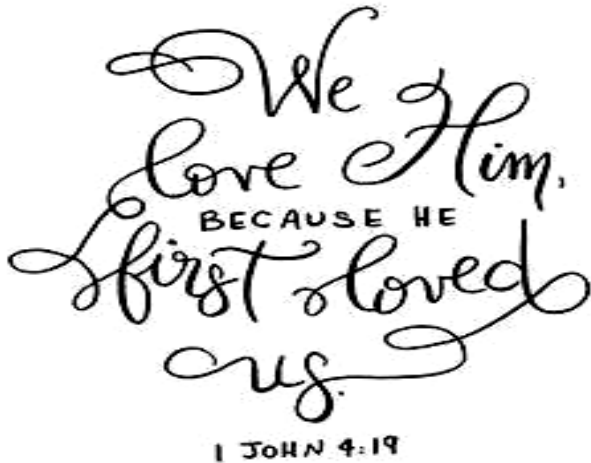 We
love Him,
BECAUSE HE
first loved
us.
1 JOHN 4:19